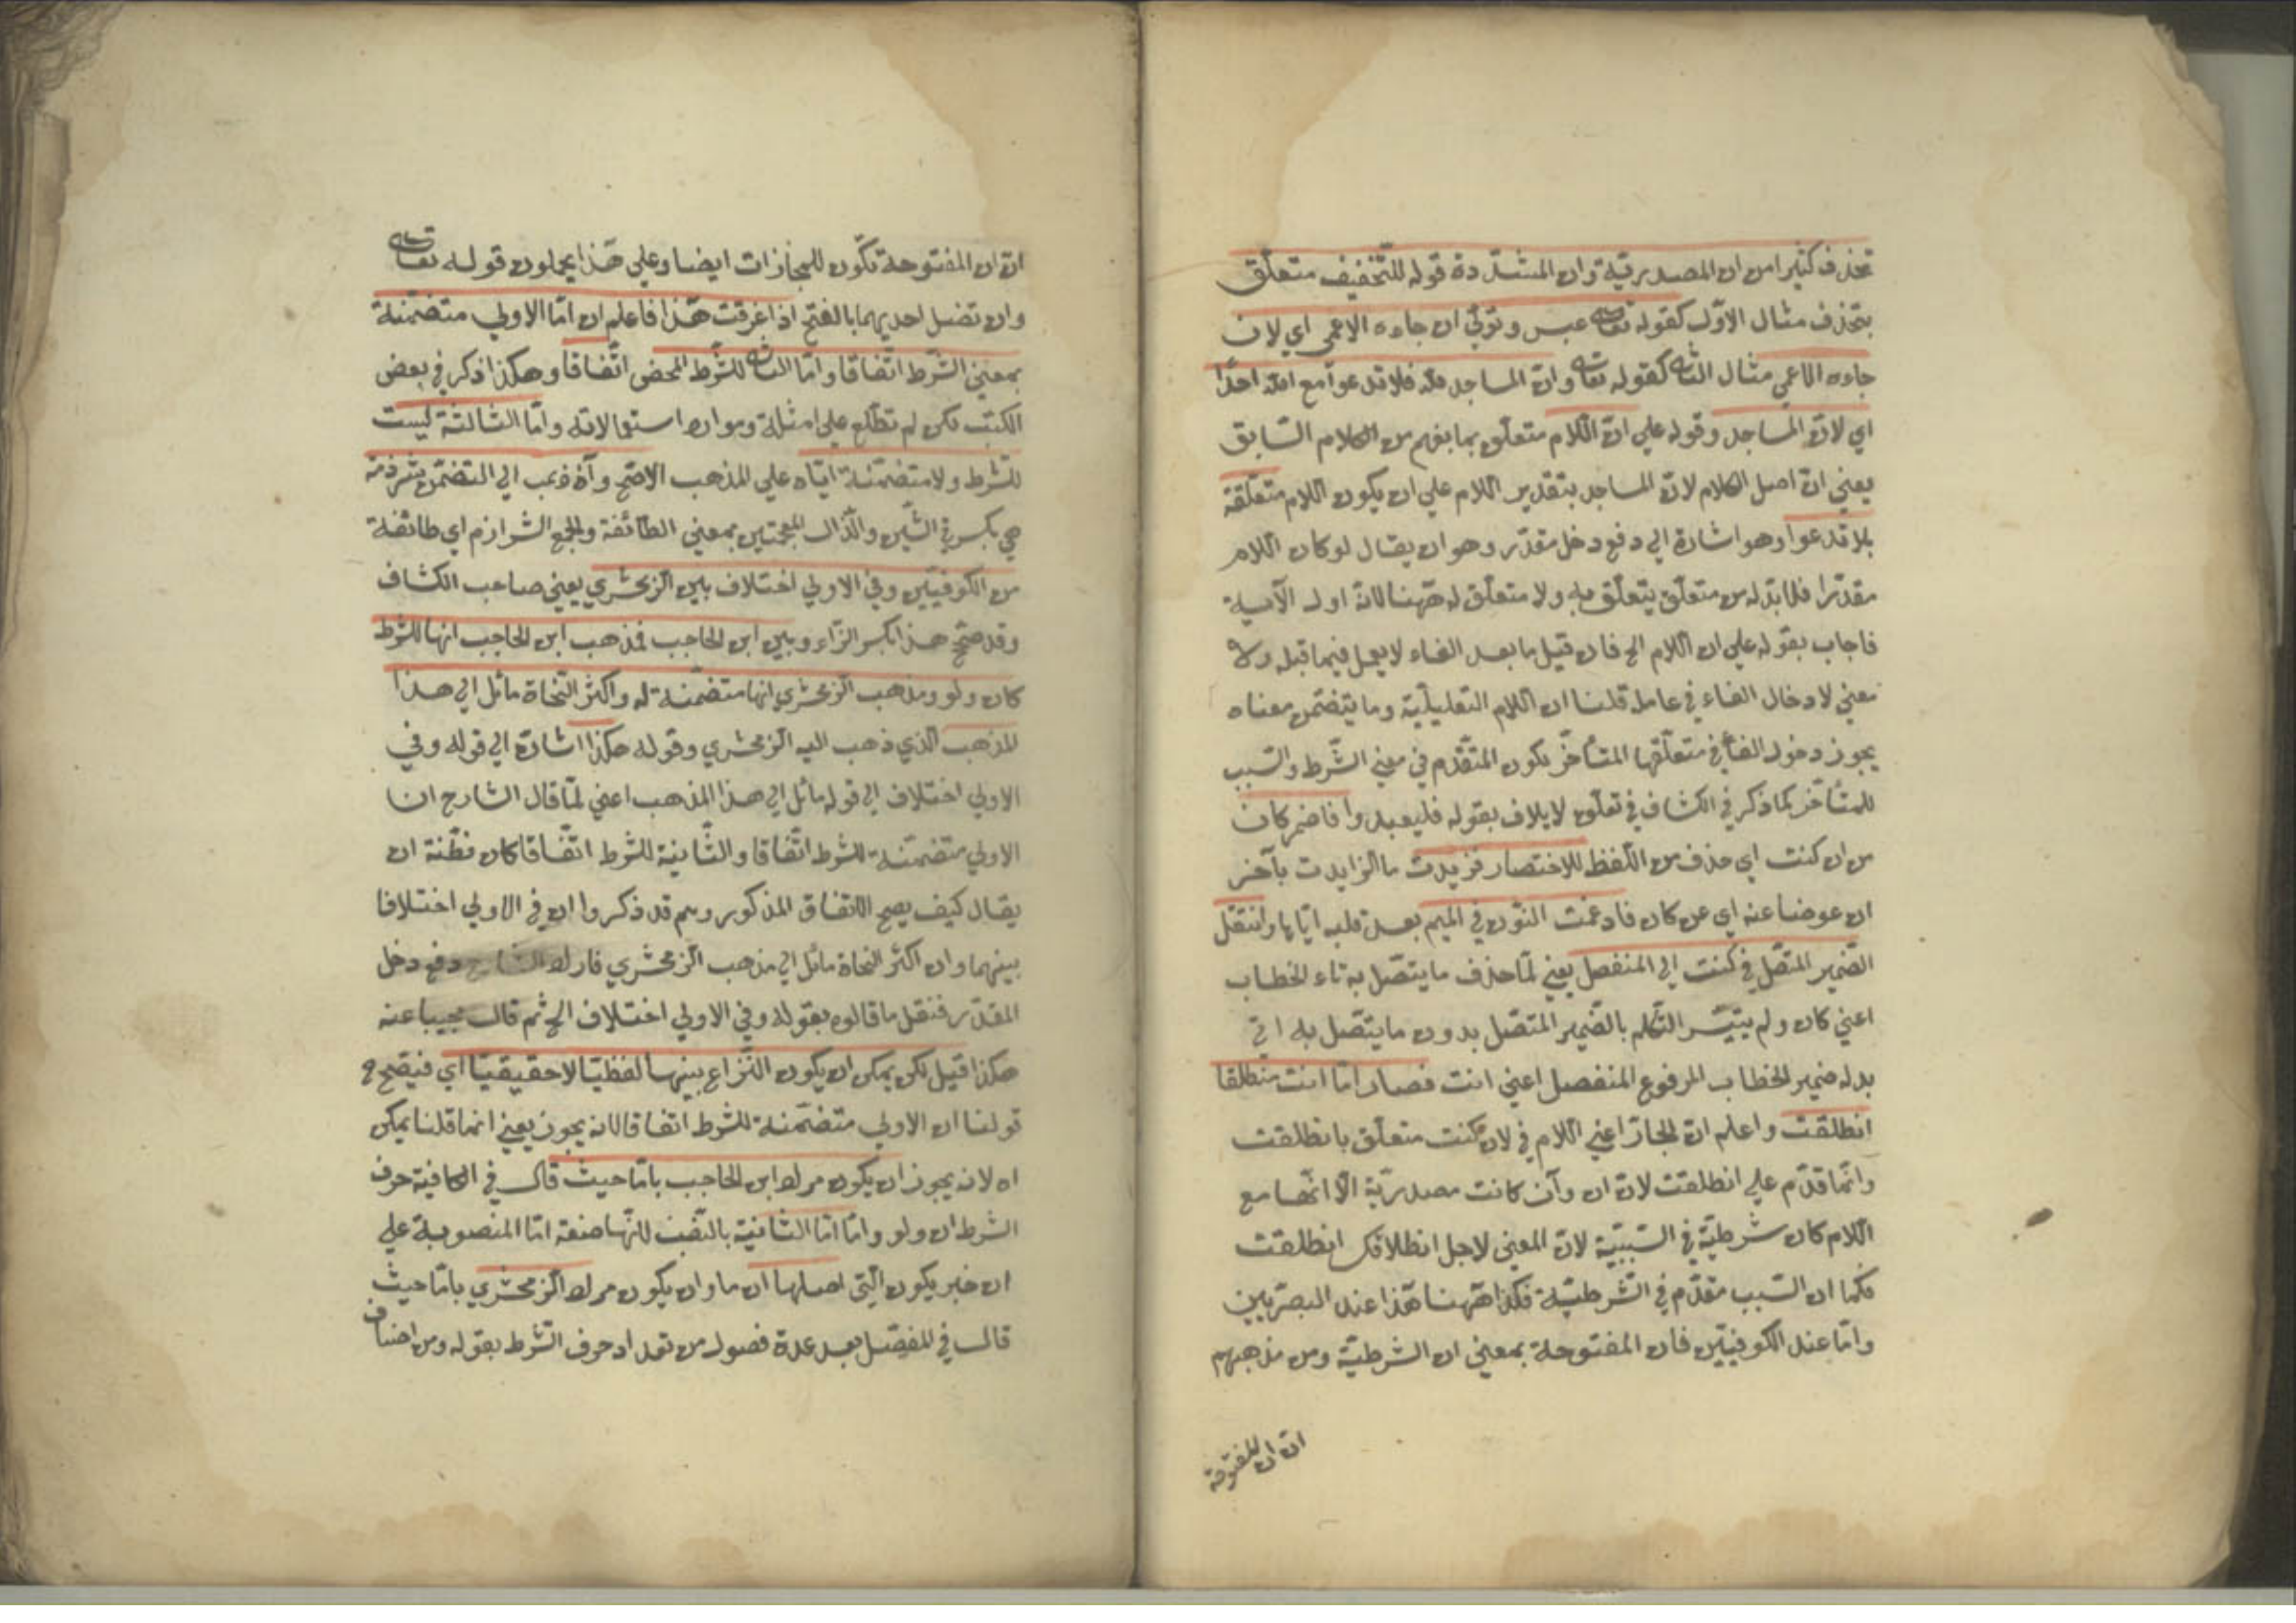 تحذف كثيرا من ان المصدرية وان المشددة قوله للتخفيف متعلق
بتحذف مثال الاول كقوله تعالى عبس وتولى ان جاءه الاعمى اي لان
جاءه الاعمى مثال الثاني كقوله تعالى وان المساجد لله فلا تدعوا مع الله احدا
اي لان المساجد وقوله علي ان اللام متعلق بما يفهم من الكلام السابق
يعني ان اصل الكلام لان المساجد بتقدير اللام علي ان يكون اللام متعلقة
بلا تدعوا وهو اشارة الي دفع دخل مقدر وهو ان يقال لو كان اللام
مقدرا فلا بد له من متعلق يتعلق به ولا متعلق له ههنا لانه اول الآية
فاجاب بقوله علي ان اللام الخ فان قيل ما بعد الفاء لا يعمل فيما قبله ولا
معني لادخال الفاء في عامله قلنا ان اللام التعليلية وما يتضمن معناه
يجوز دخول الفاء في متعلقها المتأخر يكون المتقدم في معني الشرط والسبب
للمتأخر كما ذكر في الكشاف في تعلق لايلاف بقوله فليعبدوا فاضمر كان
من ان كنت اي حذف من اللفظ للاختصار فزيدت ما الزايدت بآخر
ان عوضا عنه اي عن كان فادغمت النون في الميم بعد قلبه اياها وانتقل
الضمير المتصل في كنت الي المنفصل يعني لما حذف ما يتصل به تاء الخطاب
اعني كان ولم يتيسر التكلم بالضمير المتصل بدون ما يتصل به اتي
بدله ضمير الخطاب المرفوع المنفصل اعني انت فصار اما انت منطلقا
انطلقت واعلم ان الجار اعني اللام في لان كنت متعلق بانطلقت
وانما قدم علي انطلقت لان ان وآن كانت مصدرية الا انها مع
اللام كان شرطية في السببية لان المعني لاجل انطلاقك انطلقت
فكما ان السبب مقدم في الشرطية فكذا ههنا هذا عند البصريين
واما عند الكوفيين فان المفتوحة بمعني ان الشرطية ومن مذهبهم
ان ان المفتوحة
ان ان المفتوحة تكون للمجازات ايضا وعلي هذا يحملون قوله تعالى
وان تضل احديهما بالفتح اذا عرفت هذا فاعلم ان اما الاولي متضمنة
بمعني الشرط اتفاقا واما الثاني للشرط المحض اتفاقا وهكذا ذكر في بعض
الكتب لكن لم تطلع علي امثلة وموارد استعمالاته واما الثالثة ليست
للشرط ولا متضمنة اياه علي المذهب الاصح وآن ذهب الي التضمن شرذمة
هي بكسرة الشين والذال المعجمتين بمعني الطائفة والجمع الشرازم اي طائفة
من الكوفيين وفي الاولي اختلاف بين الزمخشري يعني صاحب الكشاف
وقد صح هذا بكسر الزاء وبين ابن الحاجب فمذهب ابن الحاجب انها للشرط
كان ولو ومذهب الزمخشري انها متضمنة له واكثر النحاة مائل الي هذا
المذهب الذي ذهب اليه الزمخشري وقوله هكذا اشارة الي قوله وفي
الاولي اختلاف الي قوله مائل الي هذا المذهب اعني لما قال الشارح ان
الاولي متضمنة للشرط اتفاقا والثانية للشرط اتفاقا كان نظنة ان
يقال كيف يصح الاتفاق المذكور وهم قد ذكروا ان في الاولي اختلافا
بينهما وان اكثر النحاة مائل الي مذهب الزمخشري فاراد الشارح دفع دخل
المقدر فنقل ما قالوه بقوله وفي الاولي اختلاف الخ ثم قال مجيبا عنه
هكذا قيل لكن يمكن ان يكون النزاع بينهما لفظيا لا حقيقيا اي فيصح ح
قولنا ان الاولي متضمنة للشرط اتفاقا لانه يجوز يعني انما قلنا يمكن
اه لانه يجوز ان يكون مراد ابن الحاجب باما حيث قال في الكافية حرف
الشرط ان ولو واما اما الثانية بالنصب لانها صفة اما المنصوبة علي
ان خبر يكون التي اصلها ان ما وان يكون مراد الزمخشري باما حيث
قال في المفصل بعد عدة فصول من تعداد حرف الشرط بقوله ومن اصناف